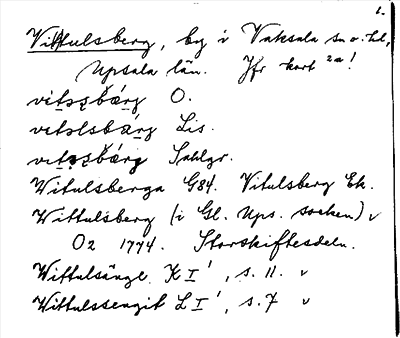 1.
Vittulsberg, by i Vaksala sn o. hd,
Upsala län. Jfr kort 2a!
O.
Lis.
Sahlgr.
Witulsberga G84. Vitulsberg Ek.
Wittulsberg (i Gl. Ups. socken) v
O2 1774. Storskiftesdeln.
Wittulsänge K I', s. 11. v
Wittulssengit L I', s. 7 v